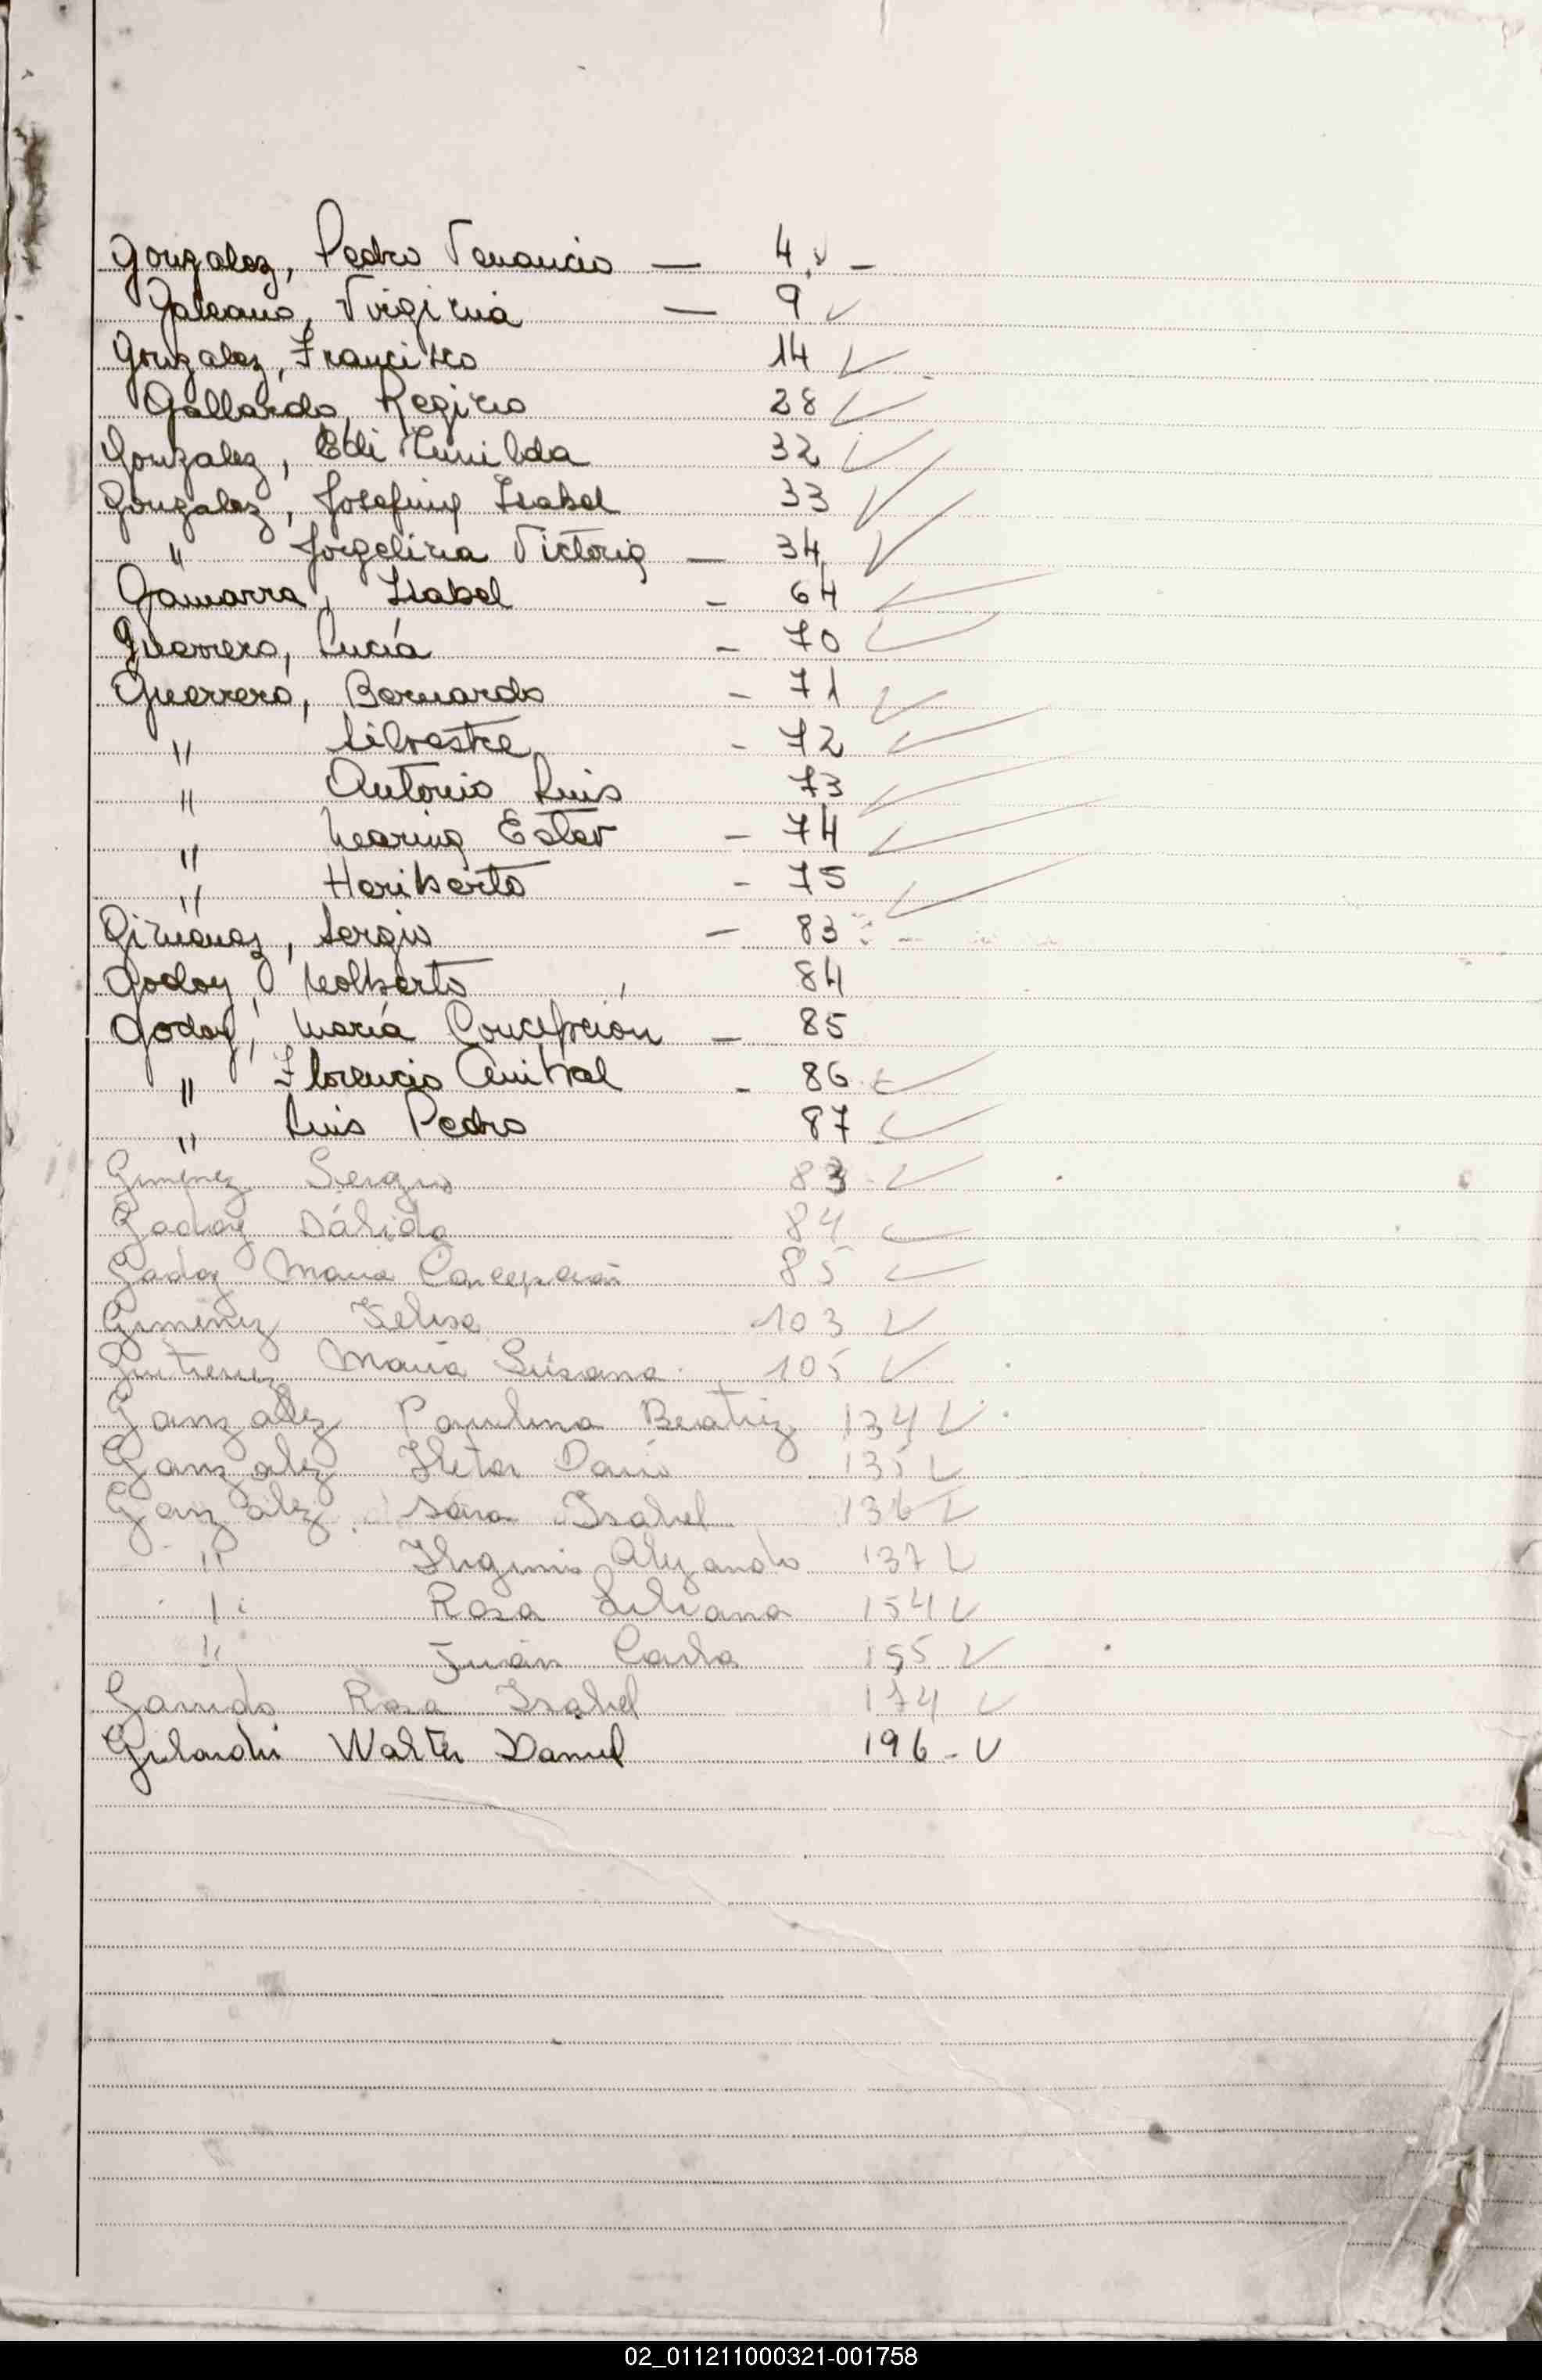 Gonzalez, Pedro Venancio — 4. v —
Galeano, Virginia — 9 ✓
Gonzalez, Francisco 14 ✓
Gallardo, Regino 28 ✓
Gonzalez, Edi 32 ✓
Gonzalez, Josefina Isabel 33 ✓
" Jorgelina Victoria — 34 ✓
Gamarra, Isabel - 64 ✓
Guerrero, Lucía - 70 ✓
Guerrero, Bernardo - 71 ✓
" Silvestre - 72 ✓
" Antonio Luis 73 ✓
" Ester - 74 ✓
" Heriberto - 75 ✓
Gimenez, Sergio — 83
Godoy, 84
Godoy, María Concepción — 85
" Florencio Anibal - 86 ✓
" Luis Pedro 87 ✓
Gimenez Sergio 83 ✓
Godoy 84 ✓
Godoy Maria Concepción 85 ✓
Gimenez Felisa 103 ✓
Gutierrez Maria Susana 105 ✓
Gonzalez Paulina Beatriz 134 ✓
Gonzalez Dario 135 ✓
Gonzalez Sara Isabel 136 ✓
" Higinio Alejandro 137 ✓
" Rosa Liliana 154 ✓
" Juan Carlos 155 ✓
Garrido Rosa Isabel 174 ✓
Gilardi Walter Daniel 196 - ✓
02_011211000321-001758